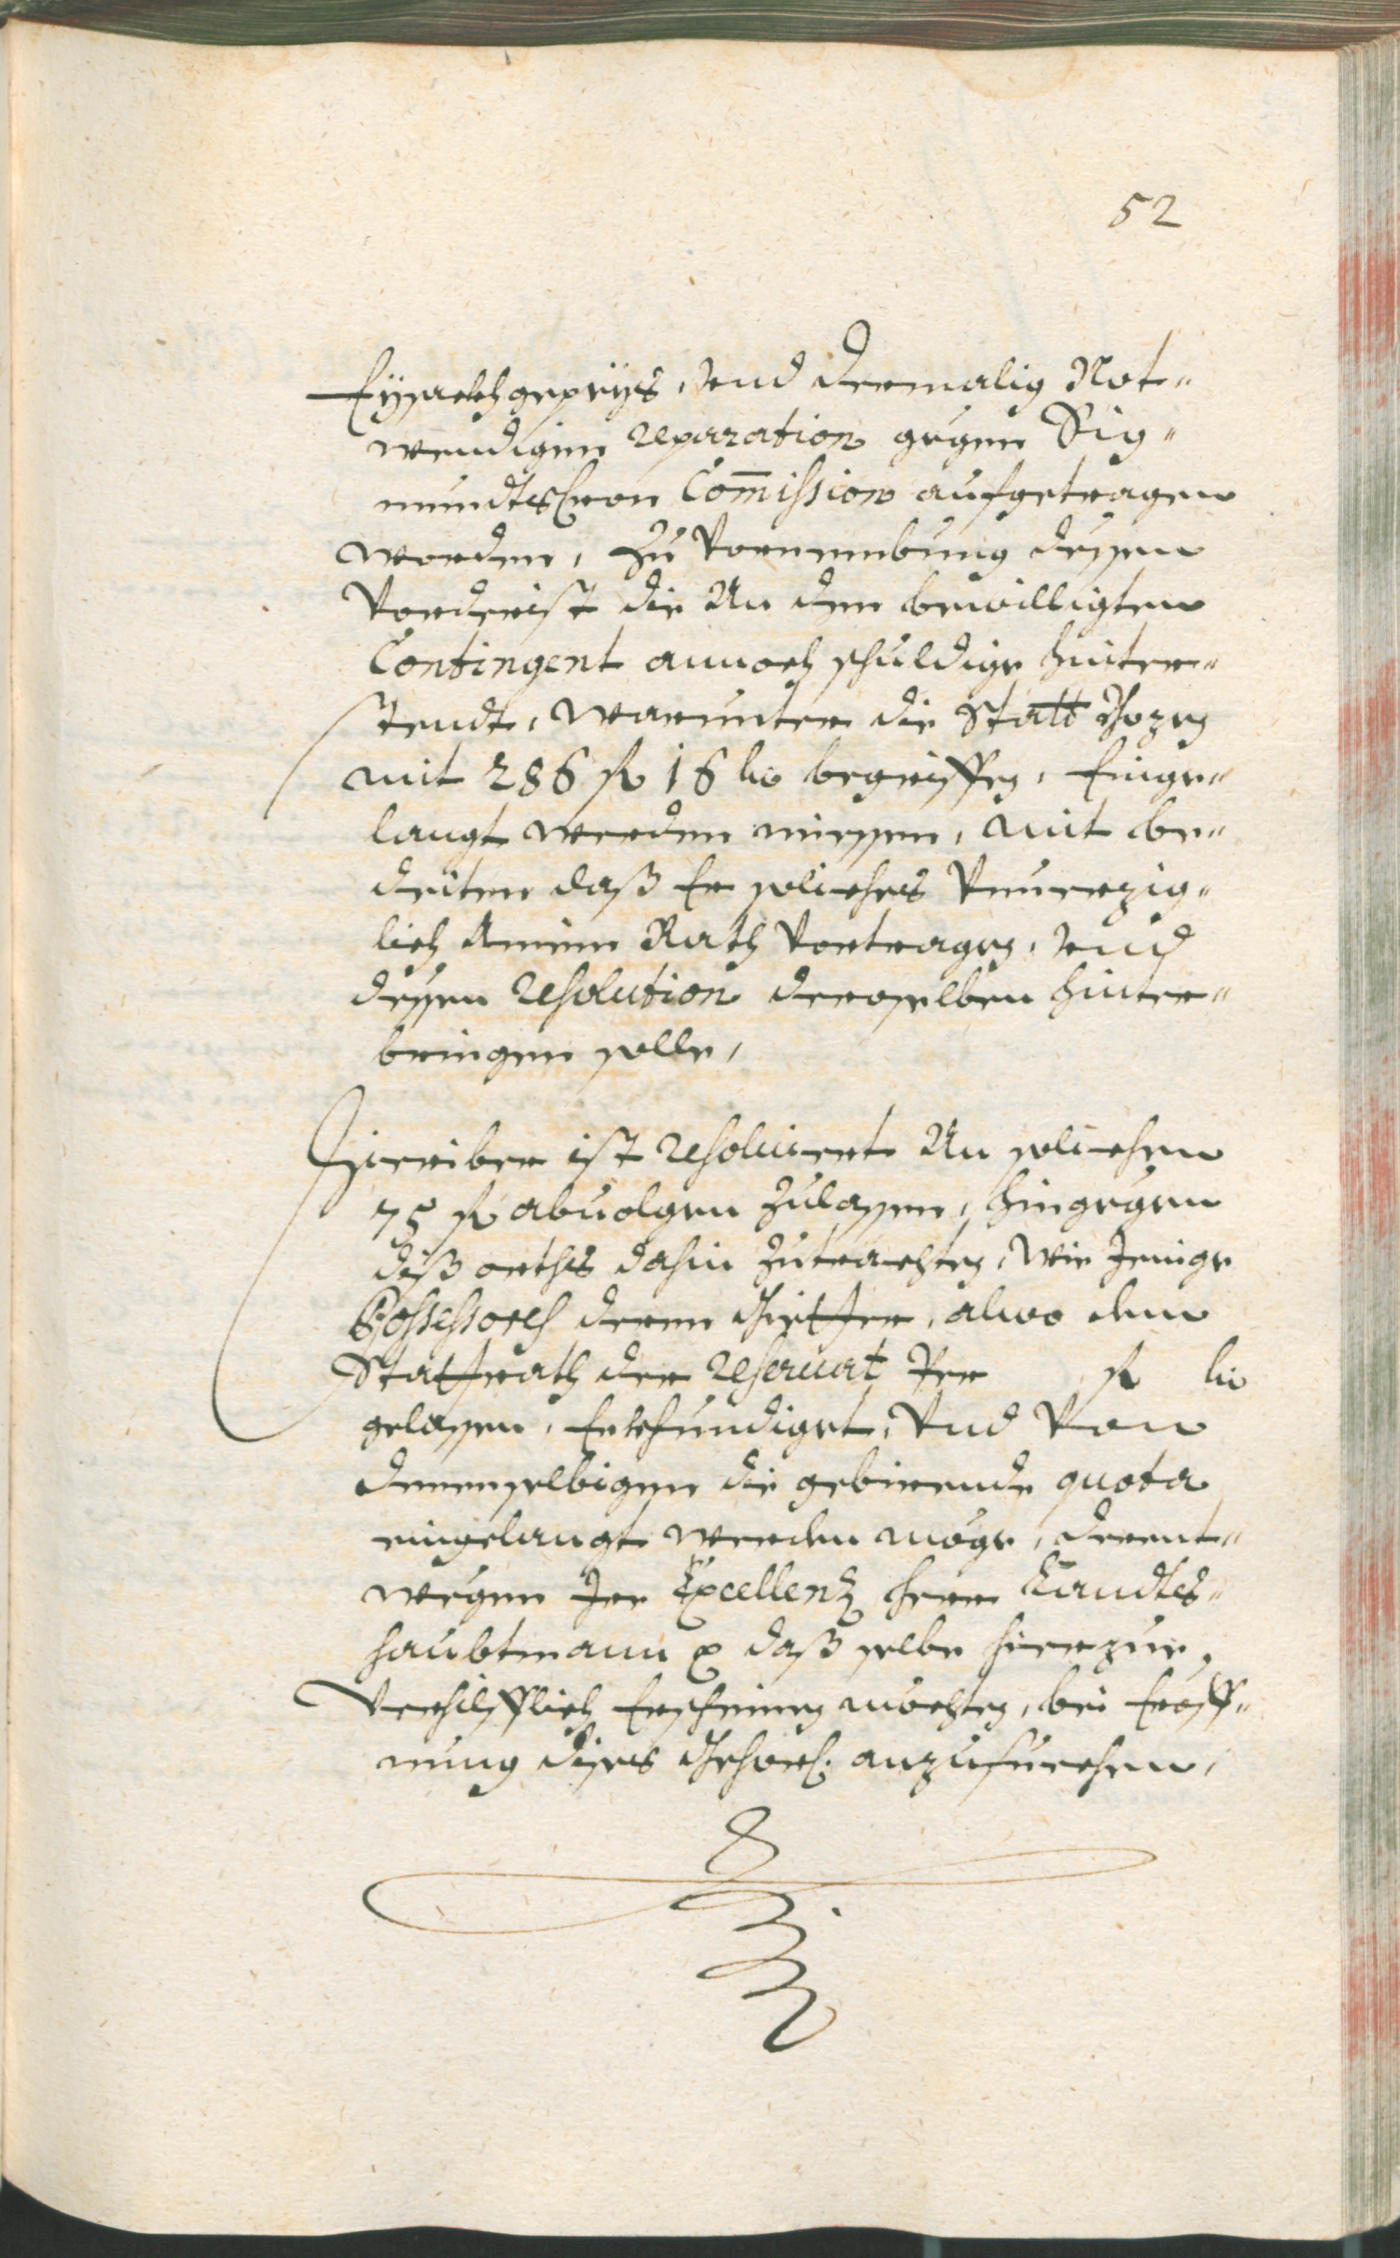 52
Eysackhgepeys, vnd dermalig Not-
wendigen reparation gegen Sig-
mundtscron Com̄ission aufgetragen
worden, zu Vornembung dessen
Vorderist die An den bewilligten
Contingent annoch schuldige hinter-
stendt, warunter die Statt Bozen
mit 286 fl 16 kr begriffen, Einge-
langt werden miessen, mit be-
deiten daß Er solliches Vnuerzig-
lich Ainem Rath Vortragen, vnd
dessen resolution deroselben hinter-
bringen solle,
Hieriber ist resoluiert An sollichen
75 fl abuolgen zulassen, hingegen
diß orths dahin zutrachten, wie Jenige
Possessores deren Gietter, alwo dem
Stattrath der reseruat Per fl kr
gelassen, Erkhundiget, Vnd Von
denenselbigen die gebirende quota
eingelangt werden möge, derent-
wegen Ier Excellenz herr Landts-
haubtmann daß selbe hierzue
Verhilfflich Erscheinen mochten, bei Eröff-
nung dises Gehors. anzufiechen,